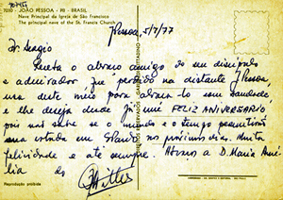 7010 - JOÃO PESSOA - PB - BRASIL
Nave Principal da Igreja de São Francisco
The principal nave of the St. Francis Church
J Pessoa, 5/7/77
Dr. Sergio
Receba o abraço amigo de seu discipulo
e admirador que perdido na distante J Pessoa
usa deste meio para abraça-lo com saudade
e lhe deseja desde já um FELIZ ANIVERSARIO
pois não sabe se o mundo e o tempo permitirá
uma estada em S Paulo nos próximos dias. Muita
felicidade e até sempre. Abraços a D. Maria Amé
lia do
Reprodução proibida